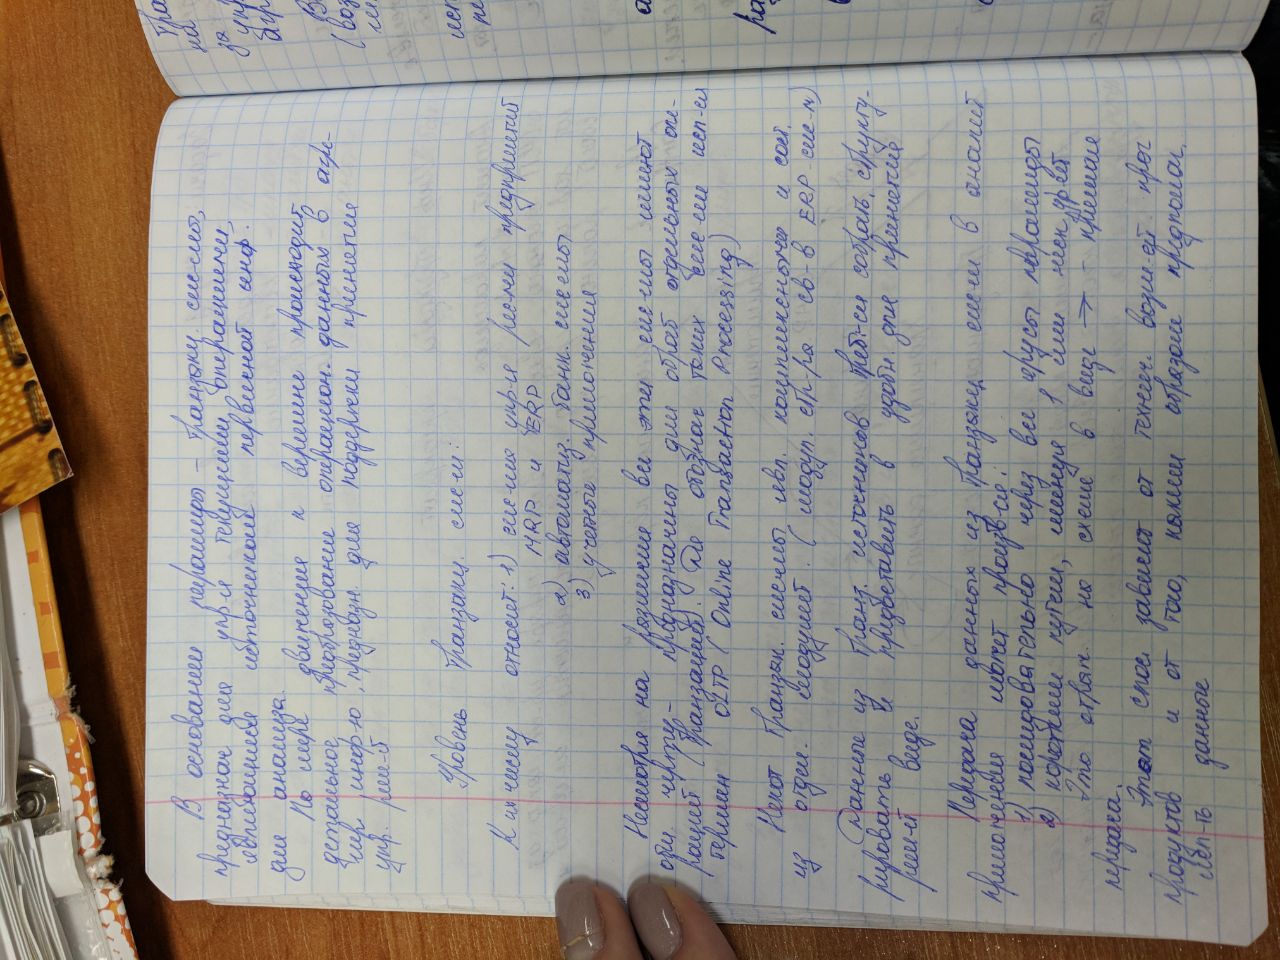 В основании пирамиды – транзакц. сис-мы,
предназнач для упр-я текущими операциями,
являющиеся источниками первичной инф.
для анализа.
По мере движения к вершине происходит
детальное преобразование операцион. данных в агре-
гир. инф-ю, предназн. для поддержки принятия
упр. реш-й
Уровень транзакц. сис-м:
К их числу относят: 1) сис-ма упр-я рес-ми предприятия
MRP и ERP
2) автоматиз. банк. системы
3) учетные приложения
Несмотря на различия все эти сис-мы имеют
один предназначены для обраб отдельных опе-
раций (транзакций). Для обознач таких сис-м исп-ся
термин OLTP (Online Transaction Processing)
Некот транзак. системы явл. комплексными и сост.
из отдел. модулей. (модул. стр-ра св-в ERP-сис-м)
Данные из транз. источников треб-ся собрать, структу-
рировать и представить в удобн для принятия
реш-й виде.
Передача данных из транзакц сис-м в аналит
приложения может произв-ся:
1) последовательно через все ярусы пирамиды
2) коротким путем, минуя 1 или неск. ур-ей
Это отраж. на схеме в виде → прямая
передача.
Этот спос зависит от технич. возм-ей прог
продуктов и от того, каким образом предполаг.
исп-ть данные